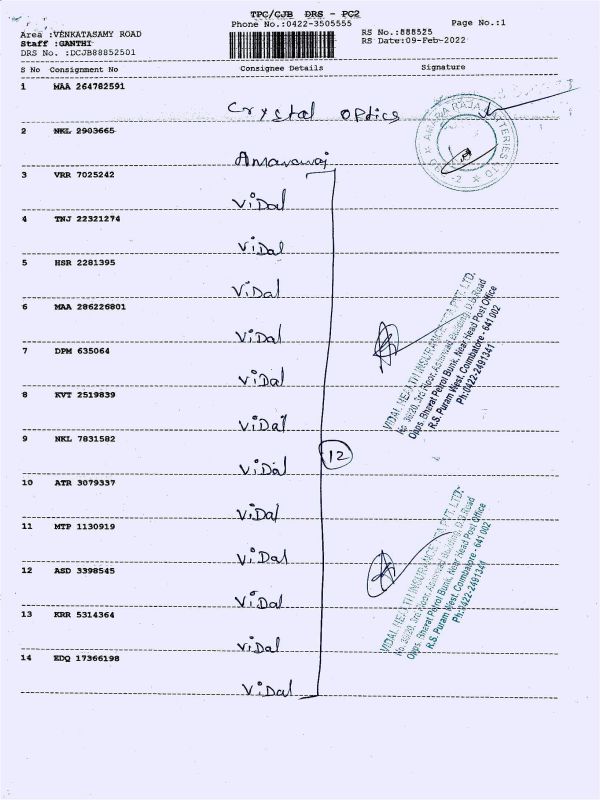 TPC/CJB DRS - PC2
Phone No.:0422-3505555
Page No.:1
Area :VENKATASAMY ROAD
Staff :GANTHI
DRS No. :DCJB88852501
RS No.:888525
RS Date:09-Feb-2022
S No Consignment No Consignee Details Signature
1 MAA 264782591
Crystal optics
2 NKL 2903665
3 VRR 7025242
ViDal
4 TNJ 22321274
ViDal
5 HSR 2281395
ViDal
6 MAA 286226801
ViDal
7 DPM 635064
ViDal
8 KVT 2519839
ViDal
9 NKL 7831582
ViDal
12
10 ATR 3079337
ViDal
11 MTP 1130919
ViDal
12 ASD 3398545
ViDal
13 KRR 5314364
ViDal
14 EDQ 17366198
ViDal
AMARA RAJA BATTERIES LTD
VIDAL HEALTH INSURANCE TPA PVT. LTD.
No 3, 3rd Floor, Building, D.B.Road
Opps. Bharat Petrol Bunk, Near Head Post Office
R.S. Puram West, Coimbatore - 641 002
Ph:0422-2491341
VIDAL HEALTH INSURANCE TPA PVT. LTD.
3rd Floor, Building, D.B.Road
Opps. Bharat Petrol Bunk, Near Head Post Office
R.S. Puram West, Coimbatore - 641 002
Ph:0422-2491341